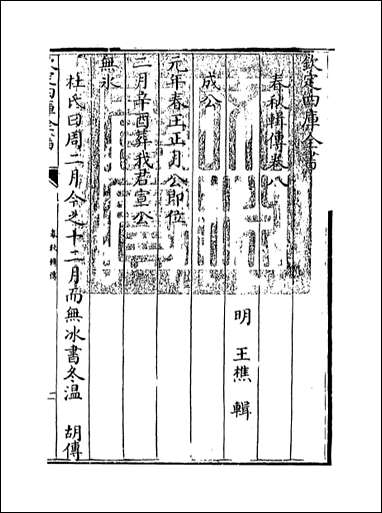 欽定四庫全書
春秋輯傳卷八
明 王樵 輯
成公
元年春王正月公即位
二月辛酉葬我君宣公
無冰
杜氏曰周二月今之十二月而無冰書冬温 胡傳
春秋輯傳